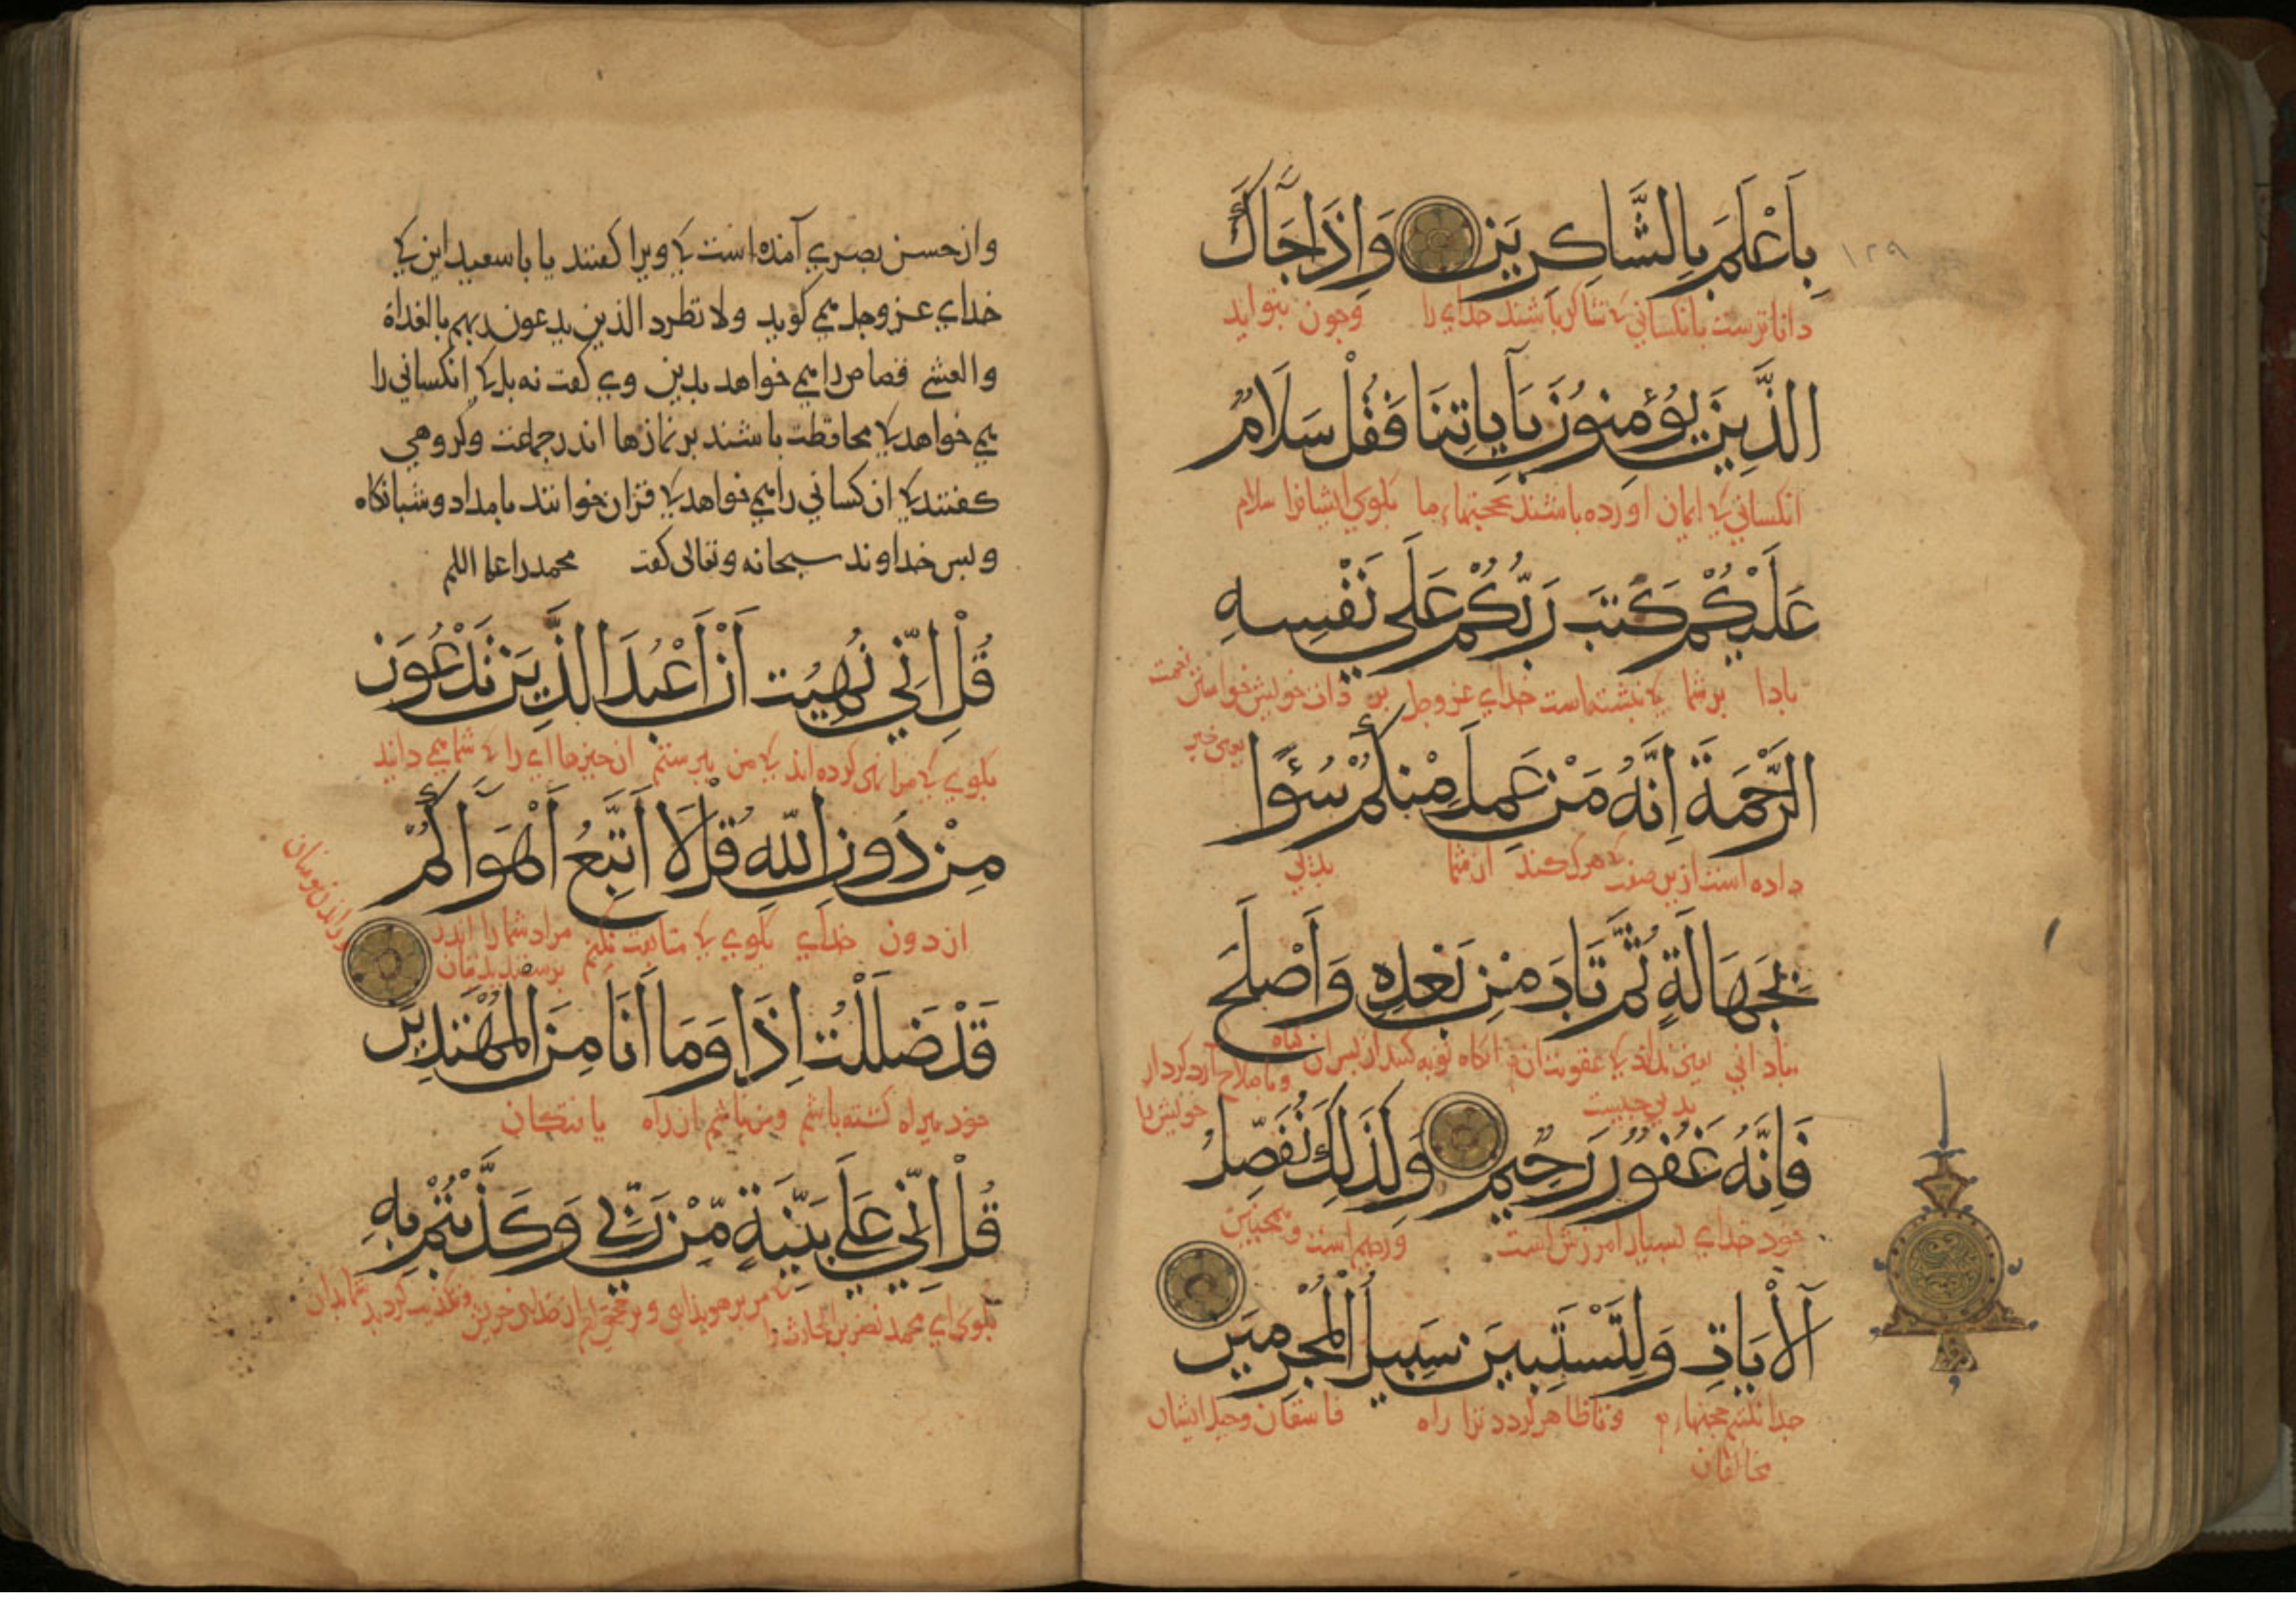 ١٢٩
بِاَعْلَمَ بِالشَّاكِرِيَن وَاِذَا جَآكَ
داناترست بانکسانی کی شاکر باشند خدای را وچون بتو اید
الذَّيِنَ يُؤمِنوُنَ بآيَاتِنَا فَقُلْ سَلَامٌ
انکسانی کی ایمان اورده باشند بحجتهاء ما بکوی ایشانرا سلام
عَلَيْكُمْ كَتَبَ رَبُّكُمْ عَلَى نَفْسِهِ
بادا بر شما کی نبشته است خدای عزوجل بر ذات خویش
الرَّحْمَةَ اِنَّهُ مَنْ عَمِلَ مِنْكُمْ سُؤًا
داده است ازین صفت کی هرک کند از شما بدئی
بِجَهَالَةٍ ثُمَّ تَابَ مِنْ بَعْدِهِ وَاَصْلَحَ
بنادانی یعنی نداند کی عقوبت ان بدی چیست انکاه توبه کند از پس ان کناه وباصلاح آرد کردار خویش را
فَاِنَّهُ غَفُورٌ رَحِيمٌ وَكَذَلِكَ نُفَصِّلُ
خود خدای بسیار امرزش است ورحیم است وهمچنین
آلْاَيَاتِ وَلِتَسْتَبِيَن سَبِيلُ الْمُجْرِمِيَن
جدا کنیم حجتهاء وتا ظاهر کردد ترا راه فاسقان وحیل ایشان
مخالفان
واز حسن بصری آمده است کی ویرا کفتند یا با سعید این کی
خدای عزوجل می کوید ولا تطرد الذین یدعون ربهم بالغداة
والعشی قصاص را می خواهد بدین وی کفت نه بل کی انکسانی را
می خواهد کی محافظت باشند بر نمازها اندر جماعت وکروهی
کفتند کی ان کسانی را می خواهد کی قران خوانند بامداد وشبانکاه
وپس خداوند سبحانه وتعالی کفت محمد را علیه السلم
قُلْ اِنّيِ نُهِيْت اَنْ اَعْبُدَ الَّذِيَن تَدْعُوَن
بکوی کی مرا نهی کرده اند کی من بپرستم ان چیزهاای را کی شما می دانید
مِنْ دُوِن اللّهِ قُلْ لَا اَتَّبِعُ اَهْوَآكُمْ
از دون خدای بکوی کی متابعت نکنم مراد شما را اندر
قَدْ ضَلَلْتُ اِذَا وَمَا اَنَا مِنَ الْمُهْتَدِيَن
خود بیراه کشته باشم ومن نباشم از راه یافتکان
قُلْ اِنّيِ عَلَي بَيّنَةٍ مّنْ رَبّي وَكَذَّبْتُمْ بِهِ
بکوی ای محمد نضر بن الحارث را کی من بر هویدایی وبر حجتی ام از خدای خویش وتکذیب کردید شما بدان